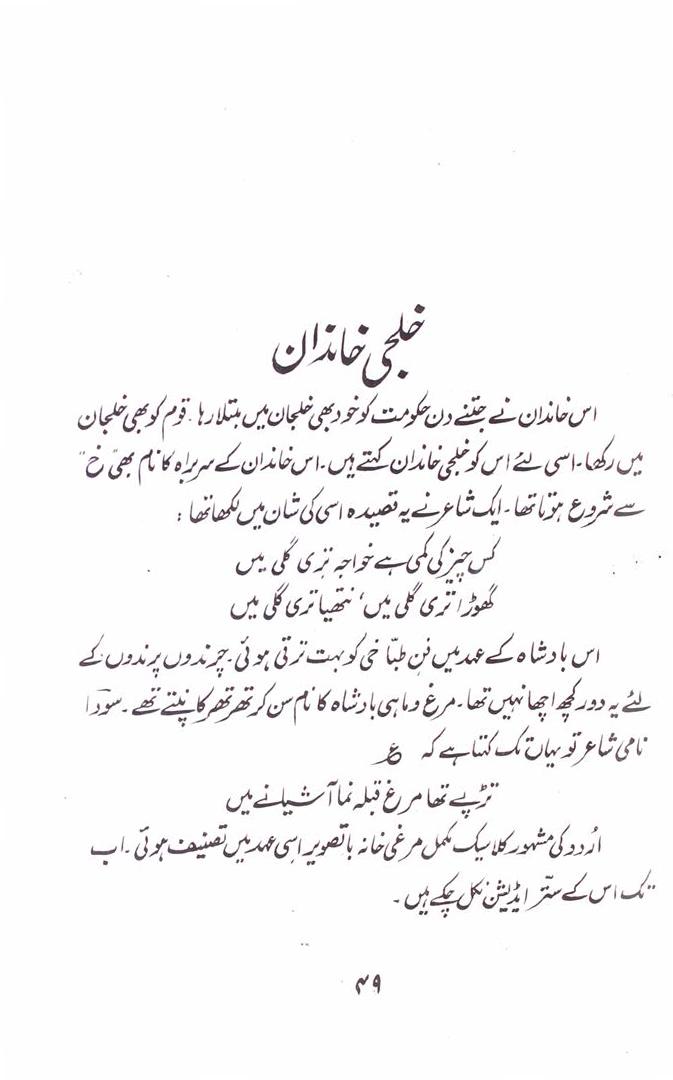 خلجی خاندان
اس خاندان نے جتنے دن حکومت کو خود بھی خلجان میں مبتلا رہا۔ قوم کو بھی خلجان
میں رکھا۔ اسی لئے اس کو خلجی خاندان کہتے ہیں۔ اس خاندان کے سربراہ کا نام بھی "خ"
سے شروع ہوتا تھا۔ ایک شاعر نے یہ قصیدہ اسی کی شان میں لکھا تھا :
کس چیز کی کمی ہے خواجہ تری گلی میں
گھوڑا تری گلی میں، نتھیا تری گلی میں
اس بادشاہ کے عہد میں فنِ طبّاخی کو بہت ترقی ہوئی۔ چرندوں پرندوں کے
لئے یہ دور کچھ اچھا نہیں تھا۔ مرغ و ماہی بادشاہ کا نام سن کر تھر تھر کانپتے تھے۔ سودا
نامی شاعر تو یہاں تک کہتا ہے کہ ع
تڑپے تھا مرغ قبلہ نما آشیانے میں
اُردو کی مشہور کلاسیک مکمل مرغی خانہ باتصویر اسی عہد میں تصنیف ہوئی۔ اب
تک اس کے ستّر ایڈیشن نکل چکے ہیں۔
۴۹